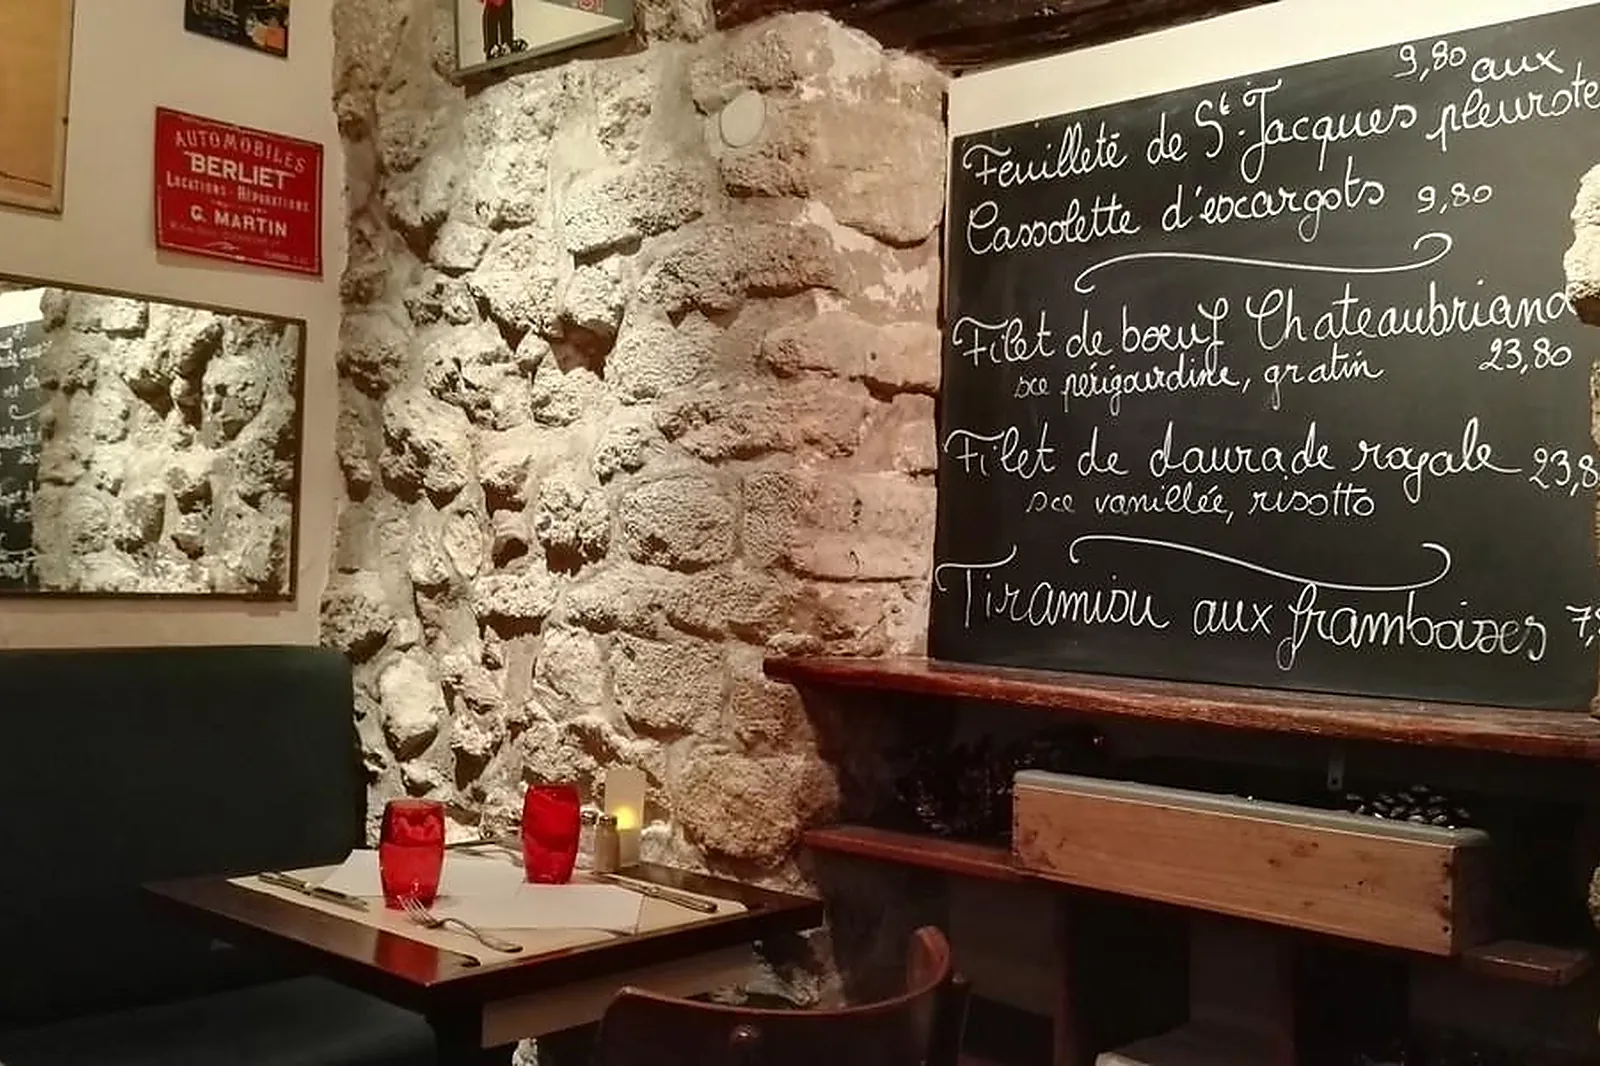 AUTOMOBILES
BERLIET
LOCATIONS - RÉPARATIONS
G. MARTIN
9,80 aux
Feuilleté de St-Jacques pleurote
Cassolette d'escargots 9,80
Filet de bœuf Chateaubriand
sce périgourdine, gratin 23,80
Filet de daurade royale 23,8
sce vanillée, risotto
Tiramisu aux framboises 7,